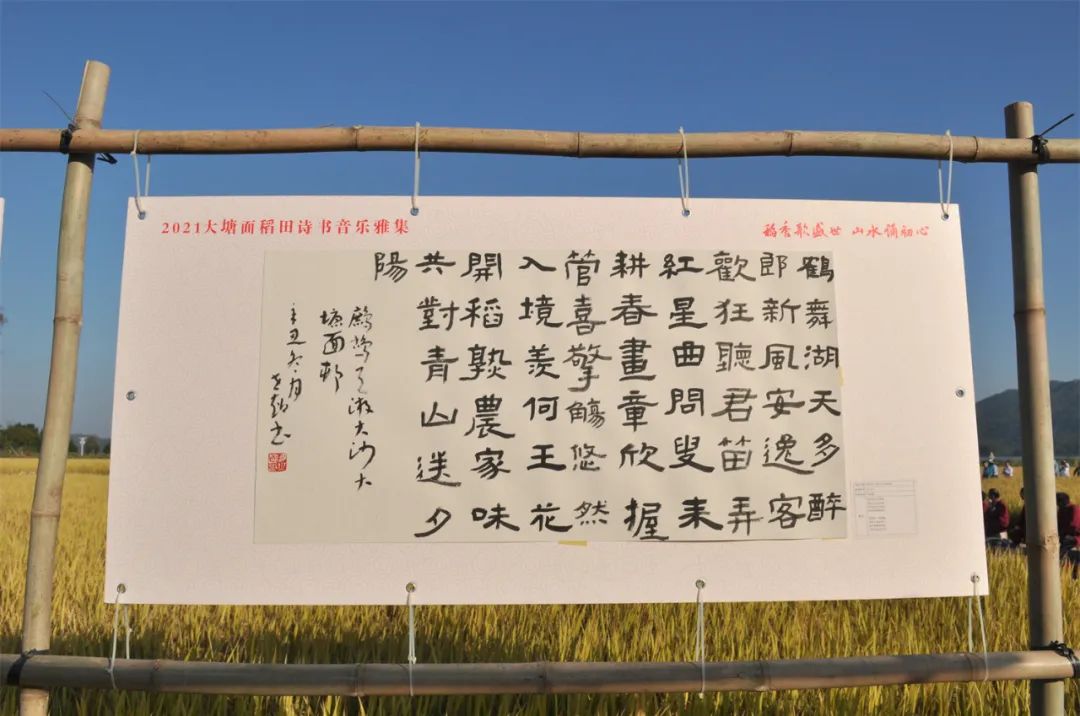 2021大塘面稻田诗书音乐雅集
稻香歌盛世 山水初心
鶴舞湖天多醉
郎新風安逸客
歡狂聽君笛弄
紅星曲問叟耒
耕春畫章欣握
管喜擎觴悠然
入境羨何王花
開稻熟農家味
共對青山送夕
陽
鷓鴣天游大沙大
塘面邨
辛丑冬月
書